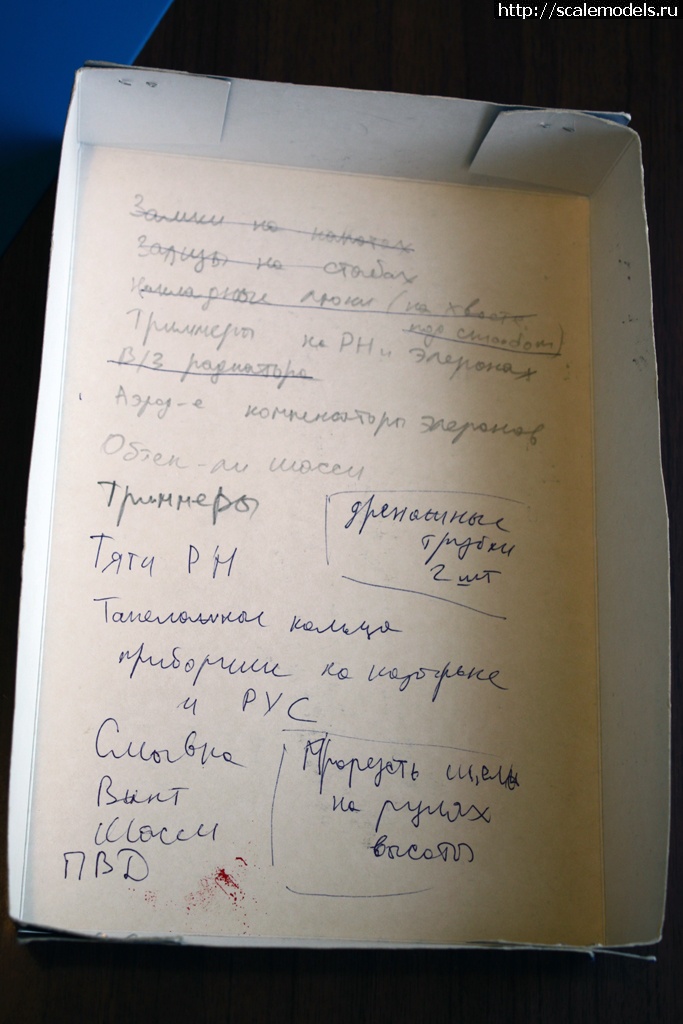 http://scalemodels.ru
Замки на капотах
на столбах
Накладные люки (на хвосте
под столбом)
Триммеры на РН и элеронах
В/З радиатора
Аэрод-е компенсаторы элеронов
Обтек-ли шасси
Триммеры
дренажные
трубки
2 шт
Тяги РН
Такелажное кольцо
приборчики на козырьке
и РУС
Смывка
Винт
Шасси
ПВД
Прорезать щели
на рулях
высоты